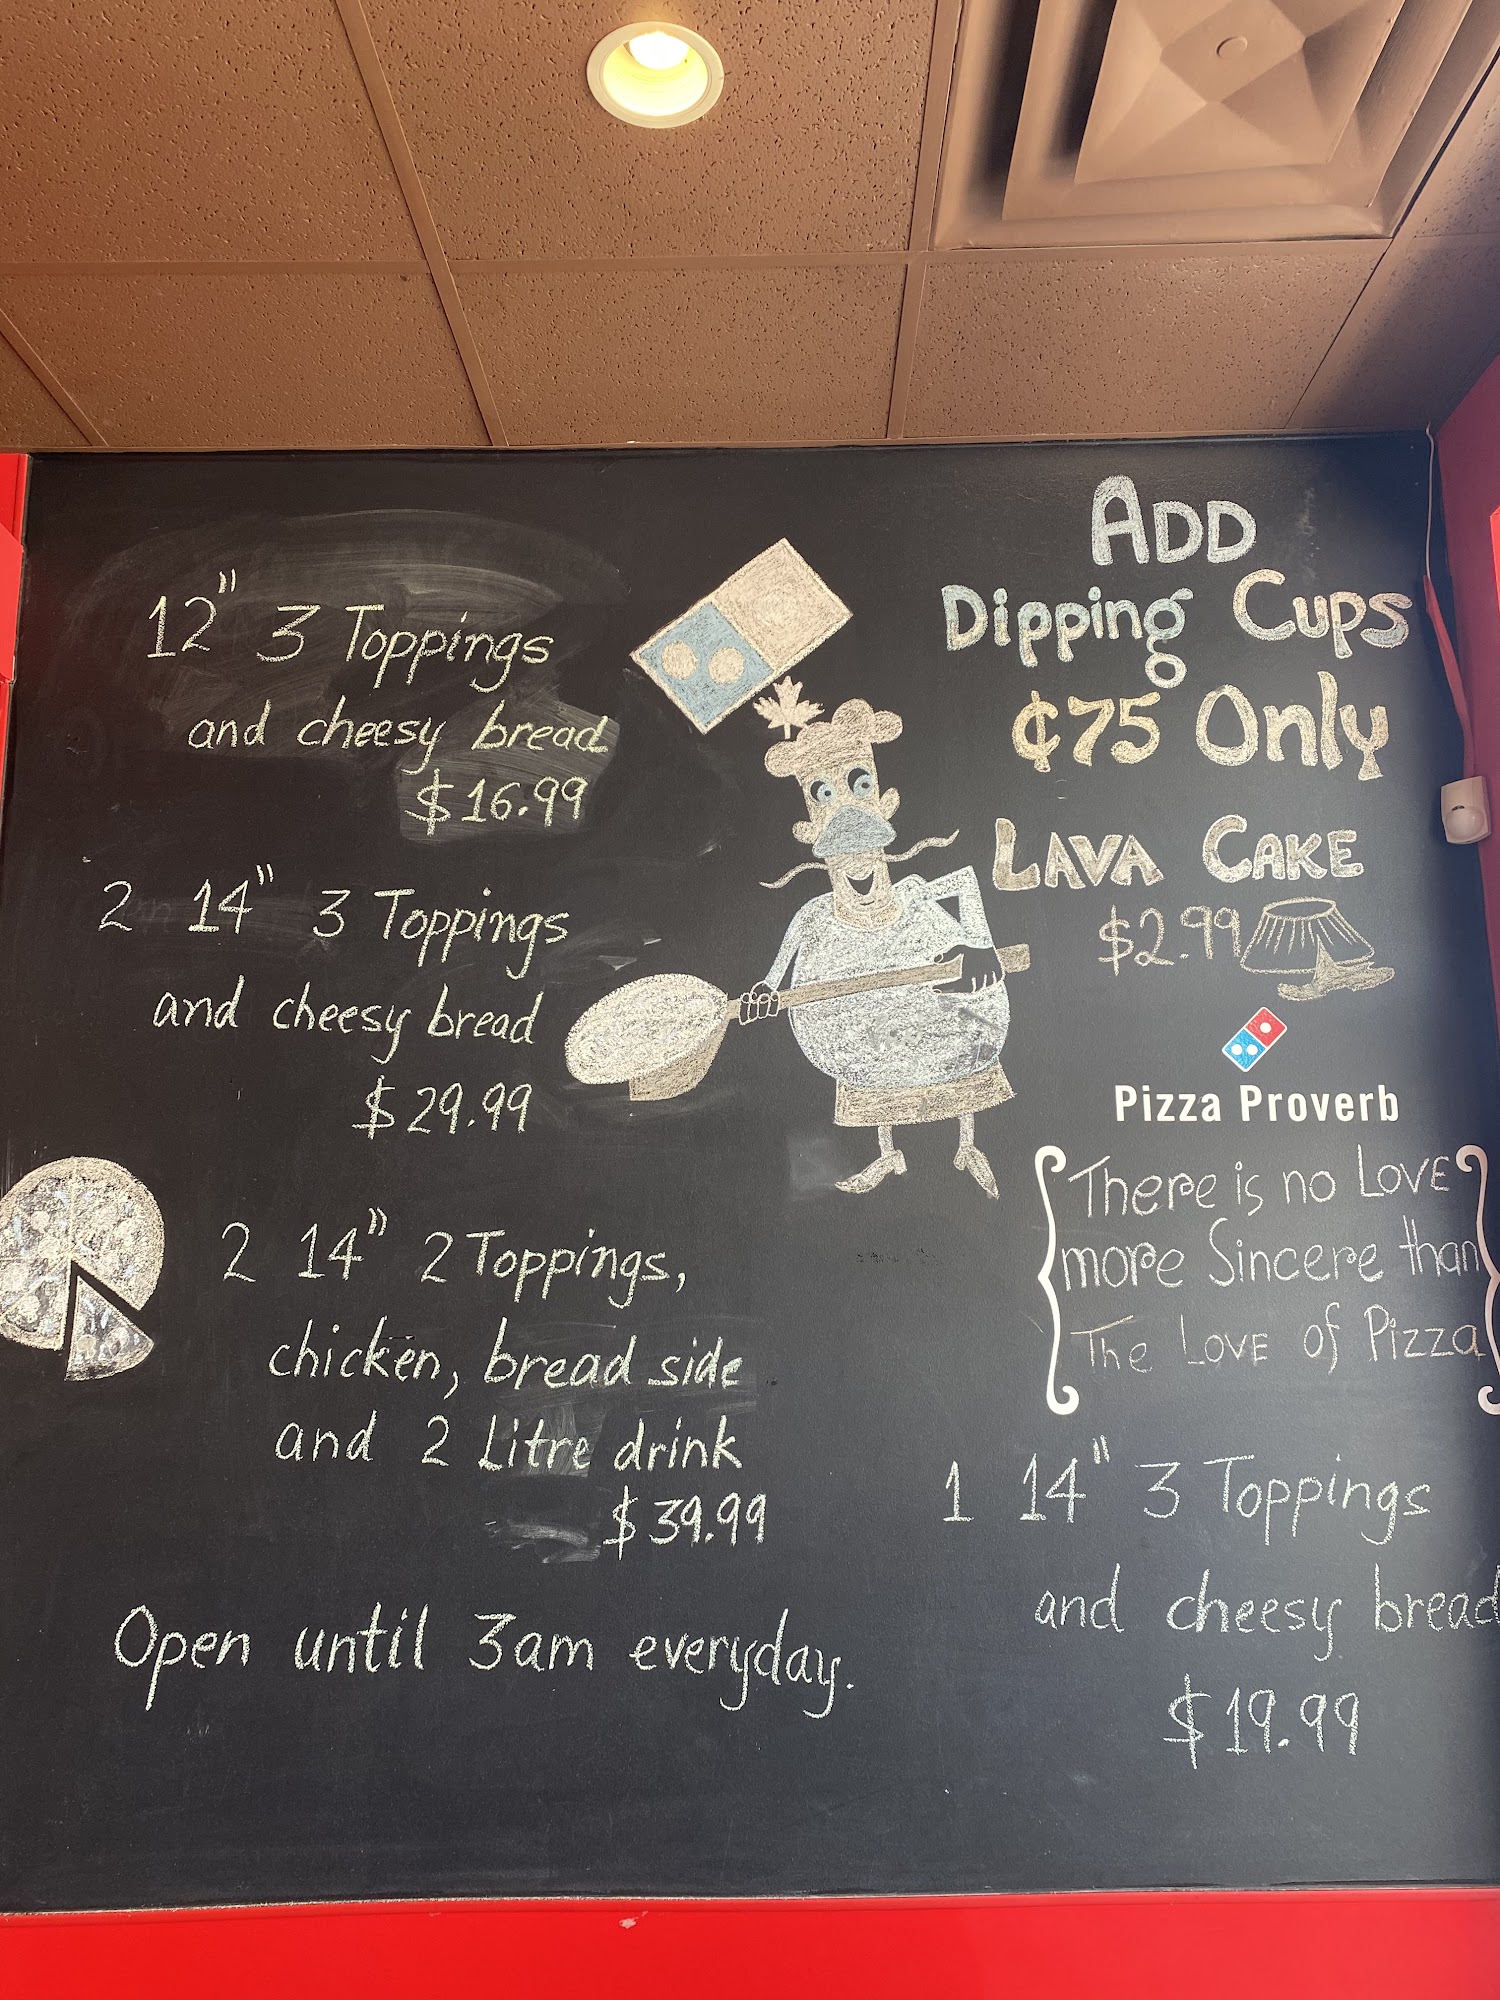 12" 3 Toppings
and cheesy bread
$16.99
2 14" 3 Toppings
and cheesy bread
$29.99
2 14" 2 Toppings,
chicken, bread side
and 2 Litre drink
$39.99
Open until 3am everyday.
ADD
Dipping Cups
¢75 Only
LAVA CAKE
$2.99
Pizza Proverb
There is no LOVE
more Sincere than
The LOVE of Pizza
1 14" 3 Toppings
and cheesy bread
$19.99